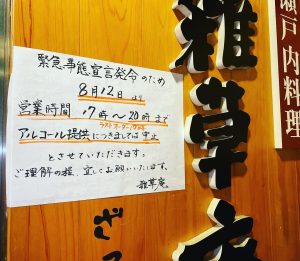 緊急事態宣言発令のため
8月12日より
営業時間 17時〜20時まで
アルコール提供につきましては中止
とさせていただきます。
ご理解の程、宜しくお願いいたします。
雑草庵
雑草庵
瀬戸内料理